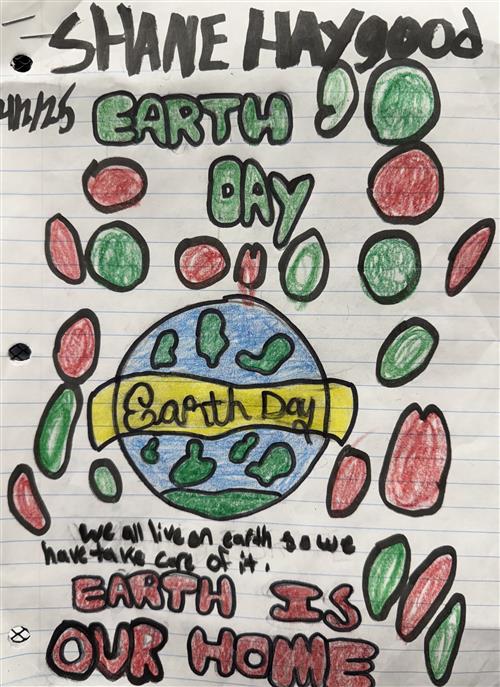 SHANE HAYgood
EARTH
DAY
Earth Day
we all live on earth so we
have take care of it.
EARTH IS
OUR HOME